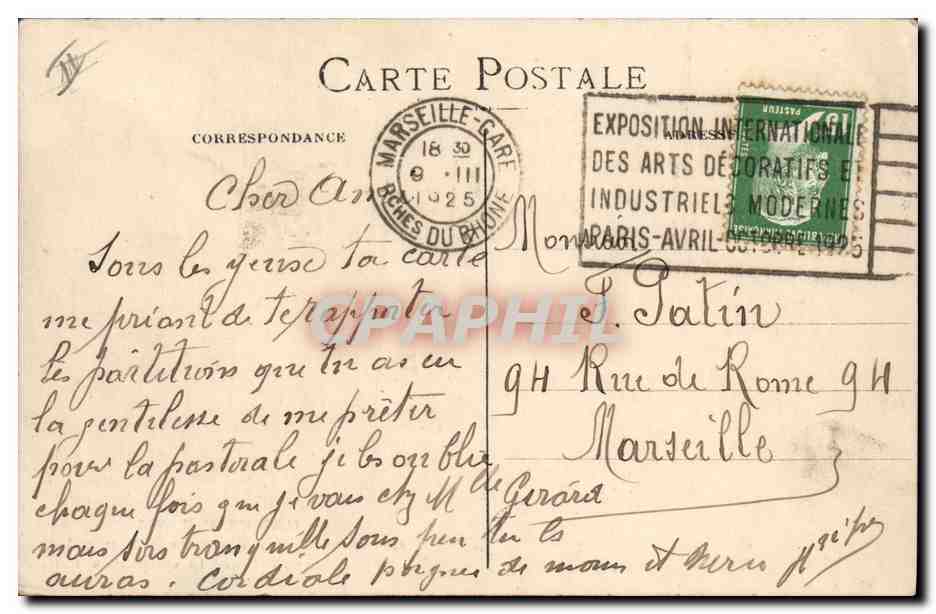 CARTE POSTALE
CORRESPONDANCE
ADRESSE
MARSEILLE-GARE
18 30
9 .III
1925
BCHES DU RHONE
EXPOSITION INTERNATIONALE
DES ARTS DÉCORATIFS ET
INDUSTRIELS MODERNES
PARIS-AVRIL-OCTOBRE 1925
PASTEUR
15
Cher Ami
Sous les yeux ta carte
me priant de te rapporter
les partitions que tu as eu
la gentilesse de me prêter
pour la pastorale je les oublie
chaque fois que je vais chez Mlle Gérard
mais sois tranquille sous peu tu les
auras. Cordiale poignée de mains et merci
Monsieur
P. Patin
94 Rue de Rome 94
Marseille
CPAPHIL